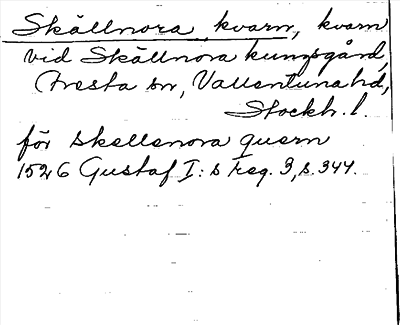 Skällnora kvarn, kvarn
vid Skällnora kungsgård,
Fresta sn, Vallentuna hd,
Stockh. l.
för skellenora quern
1526 Gustaf I:s reg. 3, s. 344.